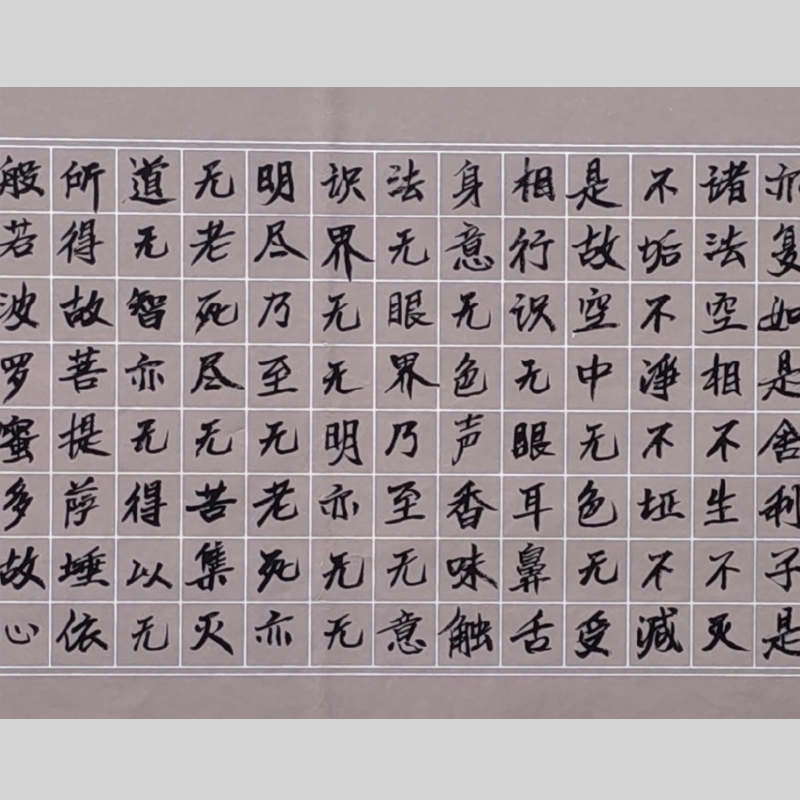 亦复如是舍利子是
诸法空相不生不灭
不垢不淨不坵不減
是故空中无色无受
相行识无眼耳鼻舌
身意无色声香味触
法无眼界乃至无意
识界无无明亦无无
明尽乃至无老死亦
无老死尽无苦集灭
道无智亦无得以无
所得故菩提萨埵依
般若波罗蜜多故心